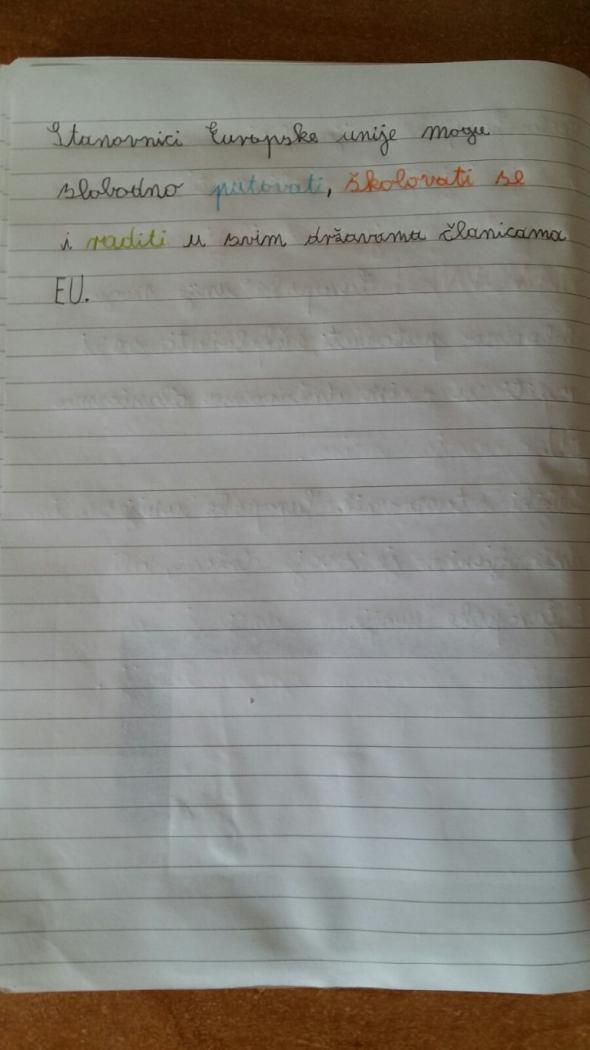 Stanovnici Europske unije mogu
slobodno putovati, školovati se
i raditi u svim državama članicama
EU.